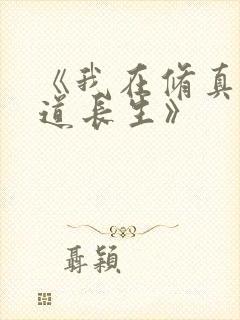 《我在脩真
道長生》
聶穎